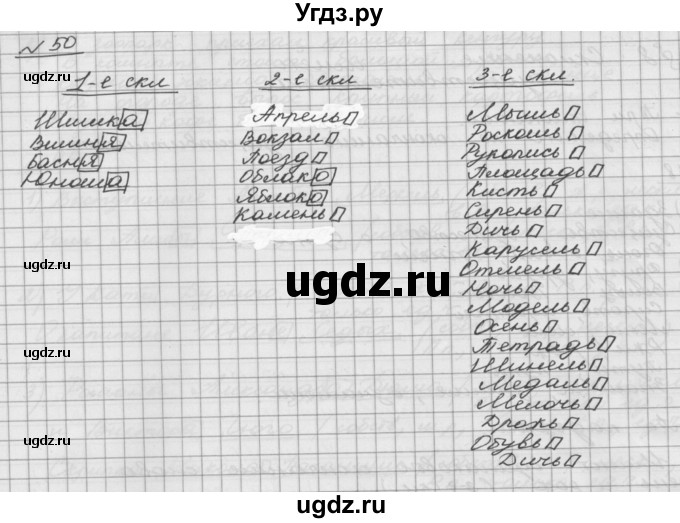 Угдз.ру
№ 50
1-е скл
Шишка
Вишня
Басня
Юноша
2-е скл
Апрель
Вокзал
Поезд
Облако
Яблоко
Камень
3-е скл.
Мышь
Роскошь
Рукопись
Площадь
Кисть
Сирень
Дичь
Карусель
Отмель
Ночь
Модель
Осень
Тетрадь
Шинель
Медаль
Мелочь
Дрожь
Обувь
Дичь
ugdz.ru
ugdz.ru
ugdz.ru
ugdz.ru
ugdz.ru
ugdz.ru
ugdz.ru
ugdz.ru
ugdz.ru
ugdz.ru